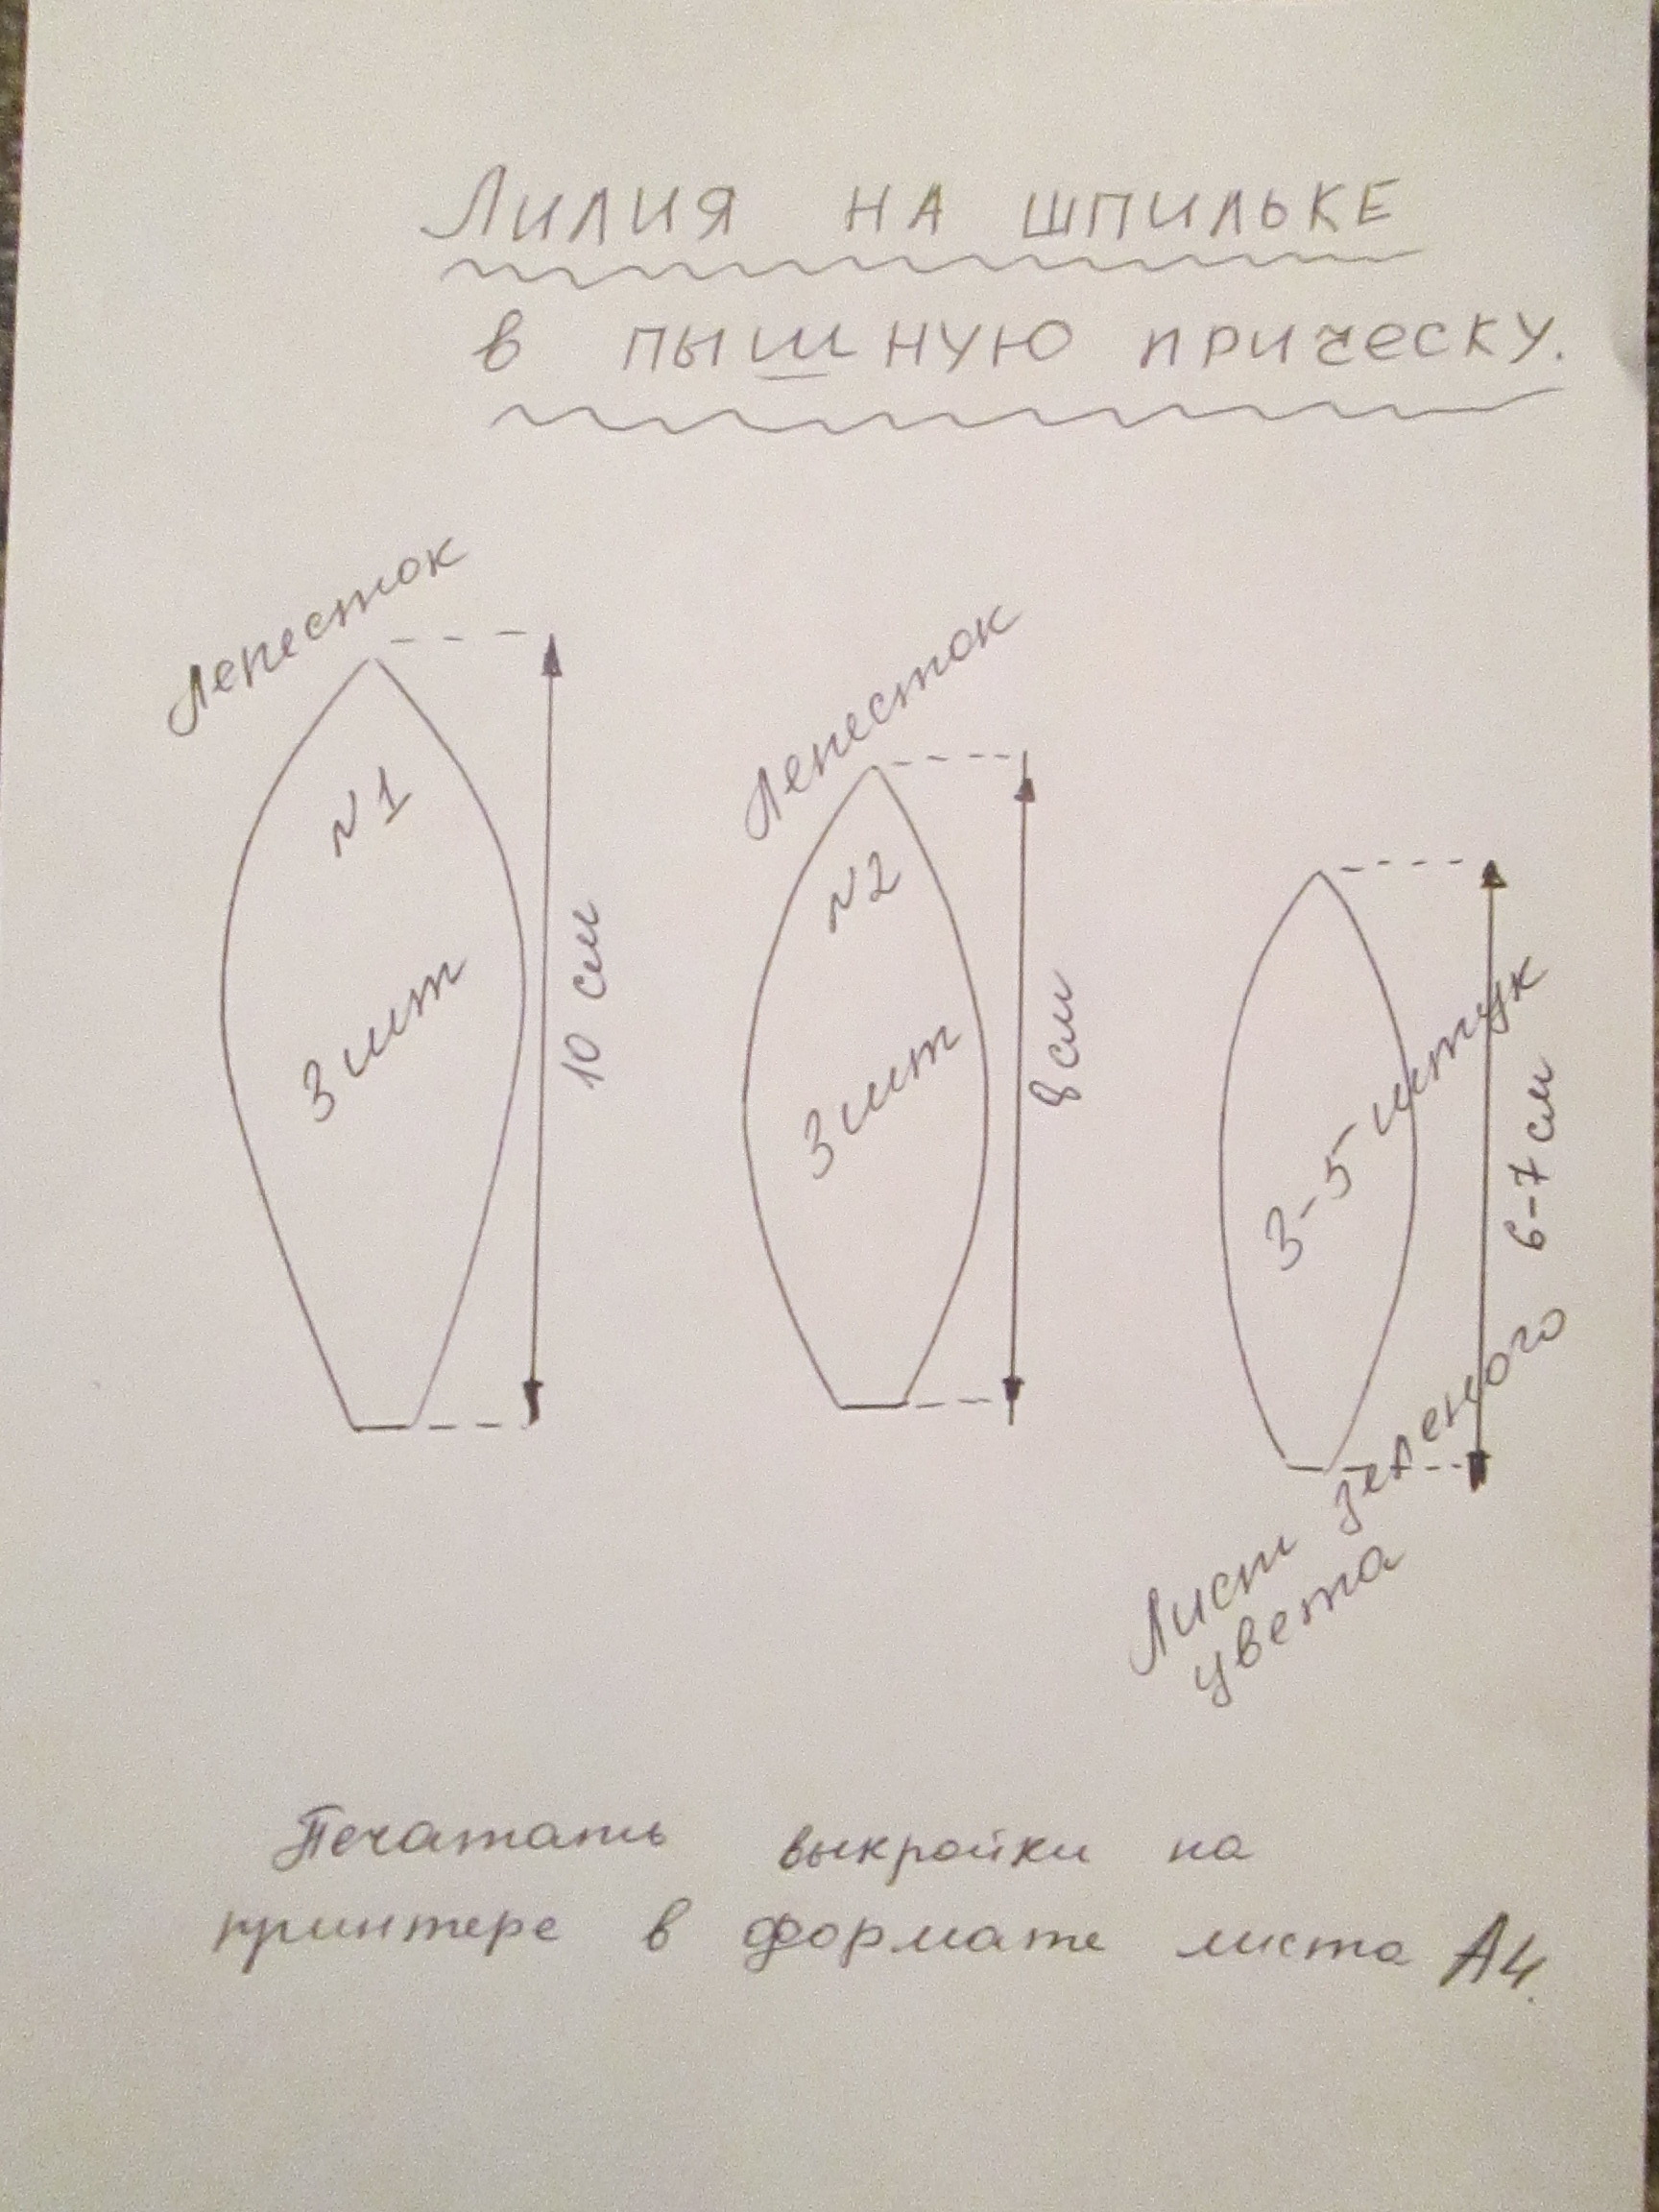 Лилия на шпильке
в пышную прическу.
Лепесток
N1
3 шт
10 см
Лепесток
N2
3 шт
8 см
3-5 штук
6-7 см
Лист зеленого
цвета
Печатать выкройки на
принтере в формате листа А4.